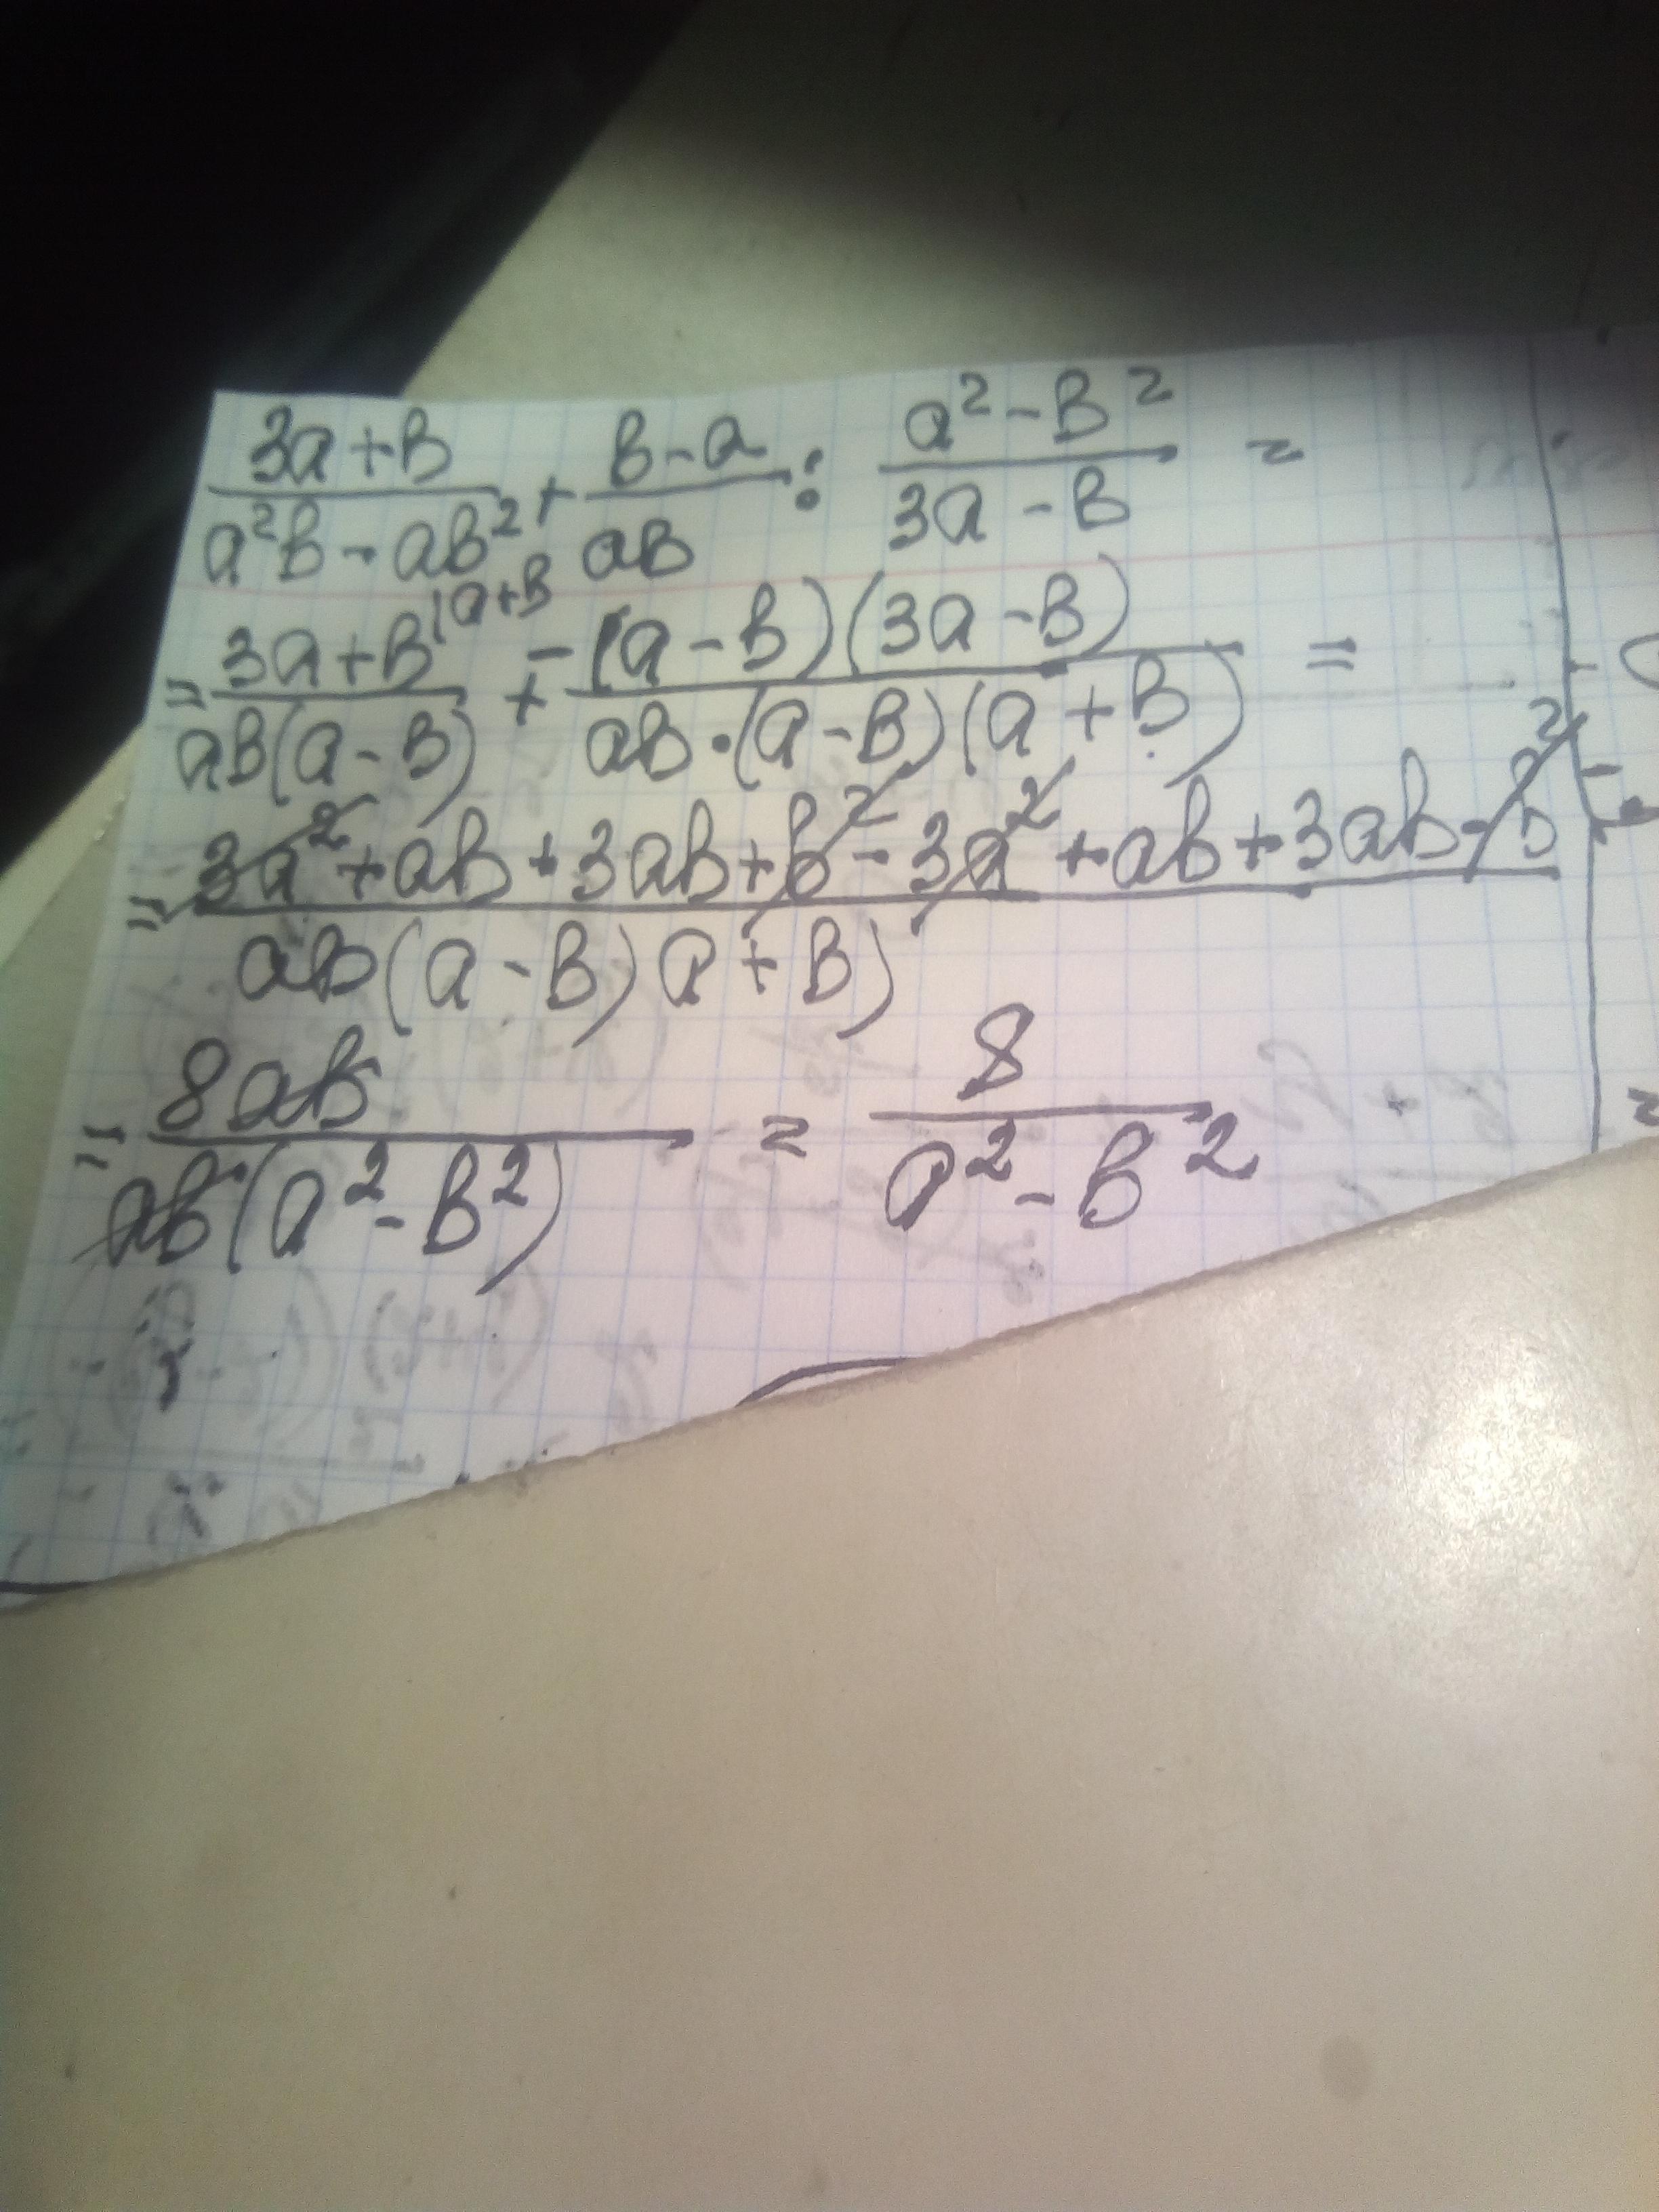 (3a+b)/(a²b-ab²) + (b-a)/(ab) : (a²-b²)/(3a-b) =
= (3a+b)/(ab(a-b)) |a+b + (-(a-b)(3a-b))/(ab·(a-b)(a+b)) =
= (3a²+ab+3ab+b²-3a²+ab+3ab-b²)/(ab(a-b)a+b))
= (8ab)/(ab·(a²-b²)) = (8)/(a²-b²)